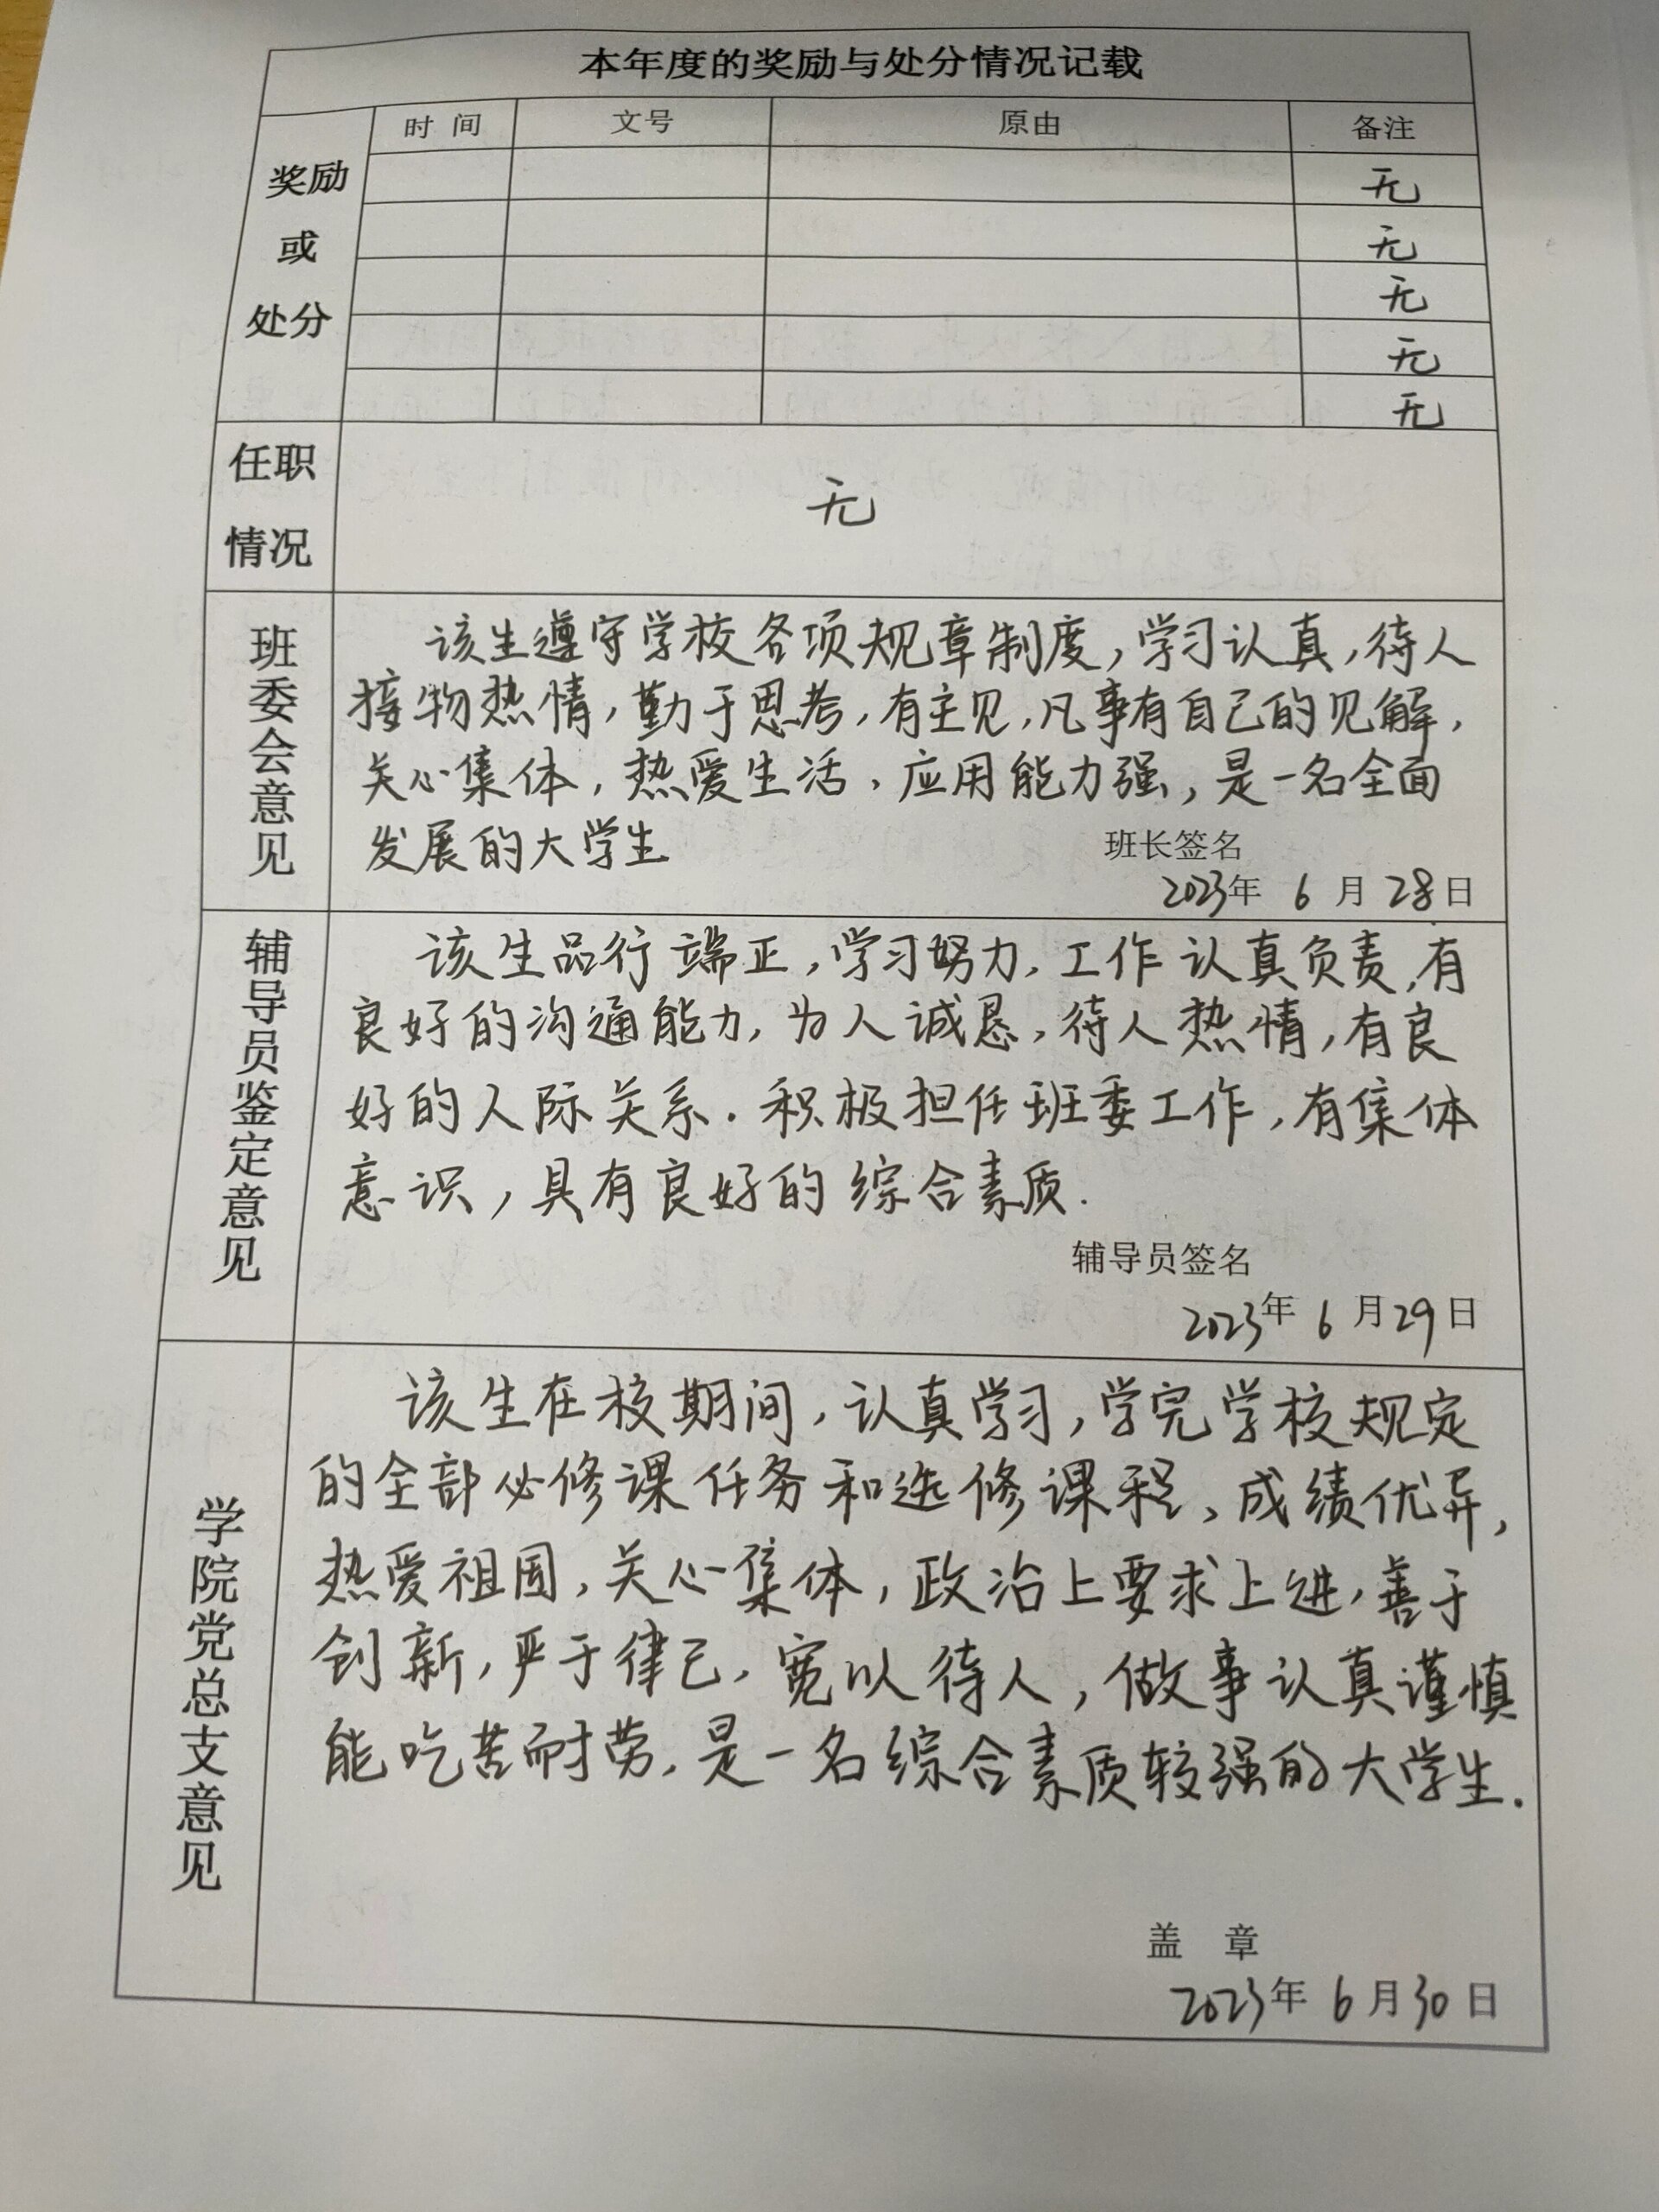 本年度的奖励与处分情况记载
时 间 文号 原由 备注
奖励
或
处分
无
无
无
无
无
任职
情况
无
班委会意见
该生遵守学校各项规章制度，学习认真，待人
接物热情，勤于思考，有主见，凡事有自己的见解，
关心集体，热爱生活，应用能力强，是一名全面
发展的大学生
班长签名
2023年 6 月 28日
辅导员鉴定意见
该生品行端正，学习努力，工作认真负责，有
良好的沟通能力，为人诚恳，待人热情，有良
好的人际关系．积极担任班委工作，有集体
意识，具有良好的综合素质．
辅导员签名
2023年 6 月29日
学院党总支意见
该生在校期间，认真学习，学完学校规定
的全部必修课任务和选修课程、成绩优异，
热爱祖国，关心集体，政治上要求上进，善于
创新，严于律己，宽以待人，做事认真谨慎
能吃苦耐劳，是一名综合素质较强的大学生．
盖 章
2023年 6 月30日